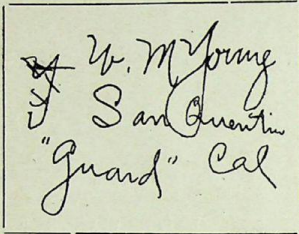 W. M. Young
San Quentin
"Guard" Cal